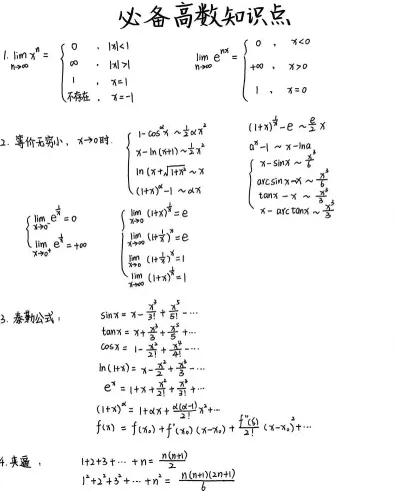 必备高数知识点
1. lim n→∞ xⁿ = { 0 , |x|<1
∞ , |x|>1
1 , x=1
不存在 , x=-1
lim n→∞ e^(nx) = { 0 , x<0
+∞ , x>0
1 , x=0
2. 等价无穷小, x→0时.
{ 1-cos^α x ~ ½αx²
x-ln(x+1) ~ ½x²
ln(x+√(1+x²)) ~ x
(1+x)^α -1 ~ αx
(1+x)^(1/x) - e ~ e/2 x
a^x -1 ~ x·lna
{ x-sinx ~ x³/6
arcsinx-x ~ x³/6
tanx-x ~ x³/3
x-arctanx ~ x³/3
{ lim x→0⁻ e^(1/x) = 0
lim x→0⁺ e^(1/x) = +∞
{ lim x→0 (1+x)^(1/x) = e
lim x→∞ (1+1/x)^x = e
lim x→0 (1+1/x)^x = 1
lim x→∞ (1+x)^(1/x) = 1
3. 泰勒公式:
sinx = x - x³/3! + x⁵/5! - ···
tanx = x + x³/3 + x⁵/5 + ···
cosx = 1 - x²/2! + x⁴/4! - ···
ln(1+x) = x - x²/2 + x³/3 - ···
e^x = 1+x+ x²/2! + x³/3! + ···
(1+x)^α = 1+αx+ α(α-1)/2! x² + ···
f(x) = f(x₀) + f'(x₀)(x-x₀) + f''(ξ)/2! (x-x₀)² + ···
1+2+3+ ··· +n = n(n+1)/2
1²+2²+3²+ ··· +n² = n(n+1)(2n+1)/6